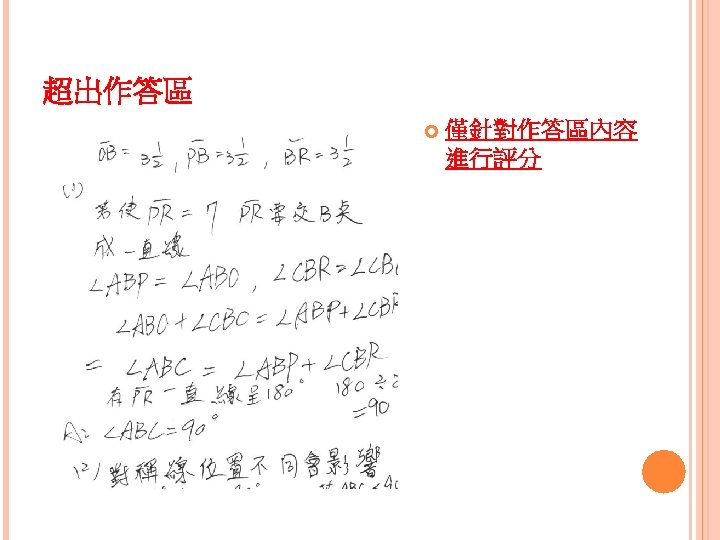 超出作答區
僅針對作答區內容
進行評分
OB = 3 1/2 , PB = 3 1/2 , BR = 3 1/2
(1)
若使 PR = 7 PR要交B点
成一直線
∠ABP = ∠ABO , ∠CBR = ∠CB
∠ABO + ∠CBO = ∠ABP + ∠CBR
= ∠ABC = ∠ABP + ∠CBR
有 PR 一直線呈180° 180 ÷ 2
= 90
A: ∠ABC = 90°
(2) 對稱線位置不同會影響